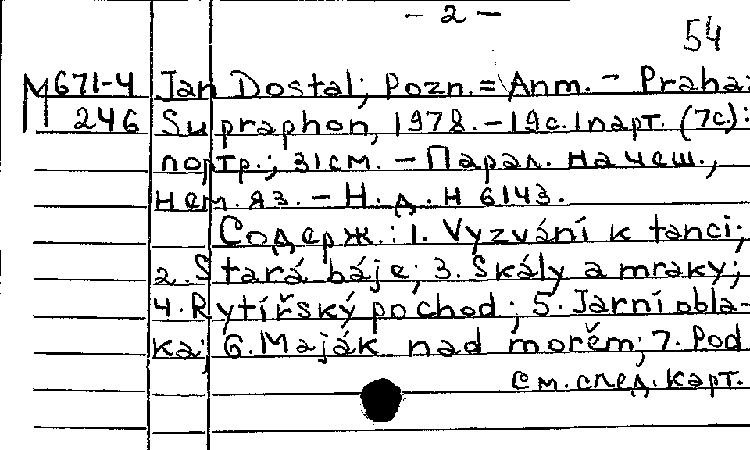 - 2 -
54
М671-4 Jan Dostal; Pozn. = Anm. - Praha:
246 Supraphon, 1978. - 19с. 1 парт. (7с.):
портр.; 31см. - Парал. на чеш.,
нем. яз. - Н. д. H 6143.
Содерж.: 1. Vyzvání k tanci;
2. Stará báje; 3. Skály a mraky;
4. Rytířský pochod; 5. Jarní obla-
ka; 6. Maják nad morěm; 7. Pod
См. след. карт.